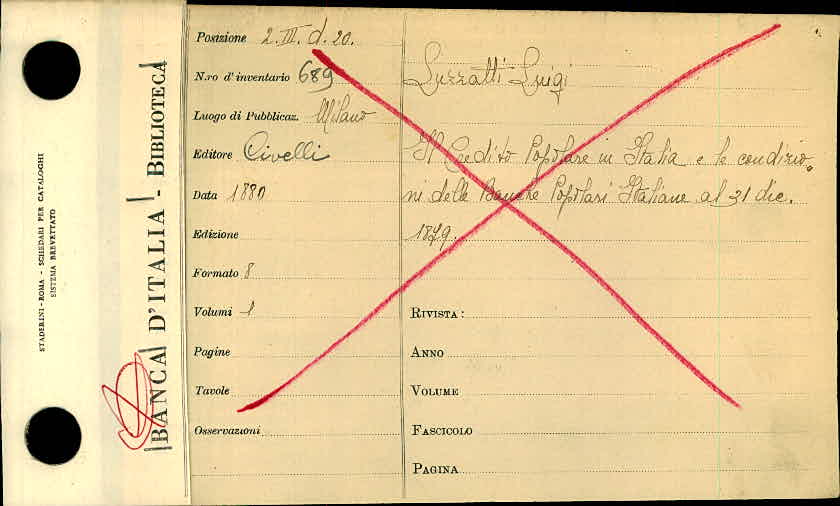 STADERINI - ROMA - SCHEDARI PER CATALOGHI
SISTEMA BREVETTATO
BANCA D'ITALIA - BIBLIOTECA
Posizione 2. III. d. 20.
N.ro d'inventario 689
Luogo di Pubblicaz. Milano
Editore Civelli
Data 1880
Edizione
Formato 8
Volumi 1
Pagine
Tavole
Osservazioni
Luzzatti Luigi
Il Credito Popolare in Italia e le condizio
ni delle Banche Popolari Italiane al 31 dic.
1879.
RIVISTA:
ANNO
VOLUME
FASCICOLO
PAGINA